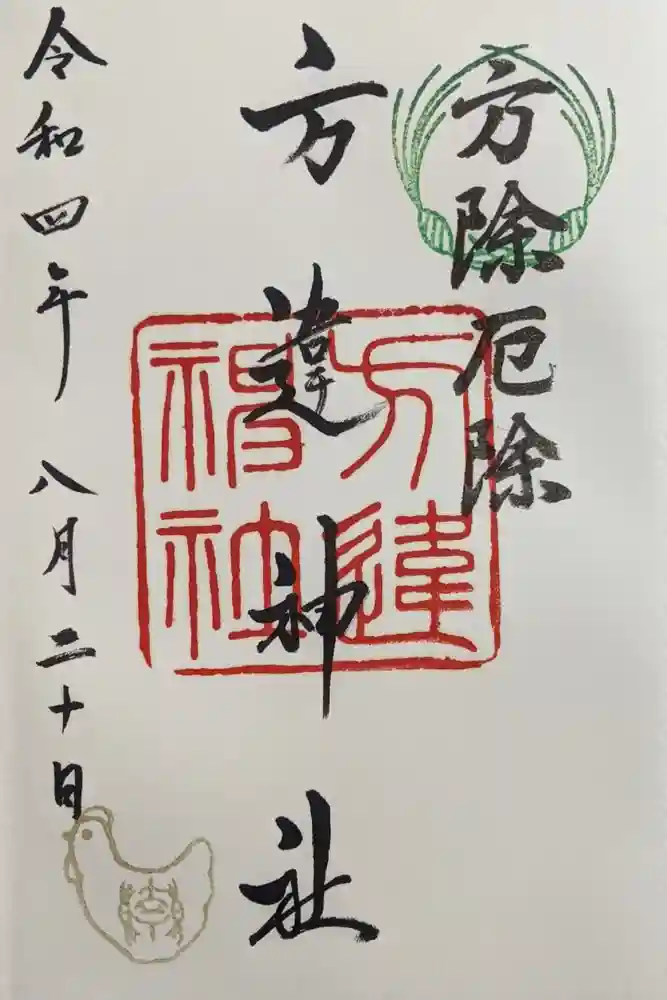 方除厄除
方違神社
方違神社
令和四年八月二十日